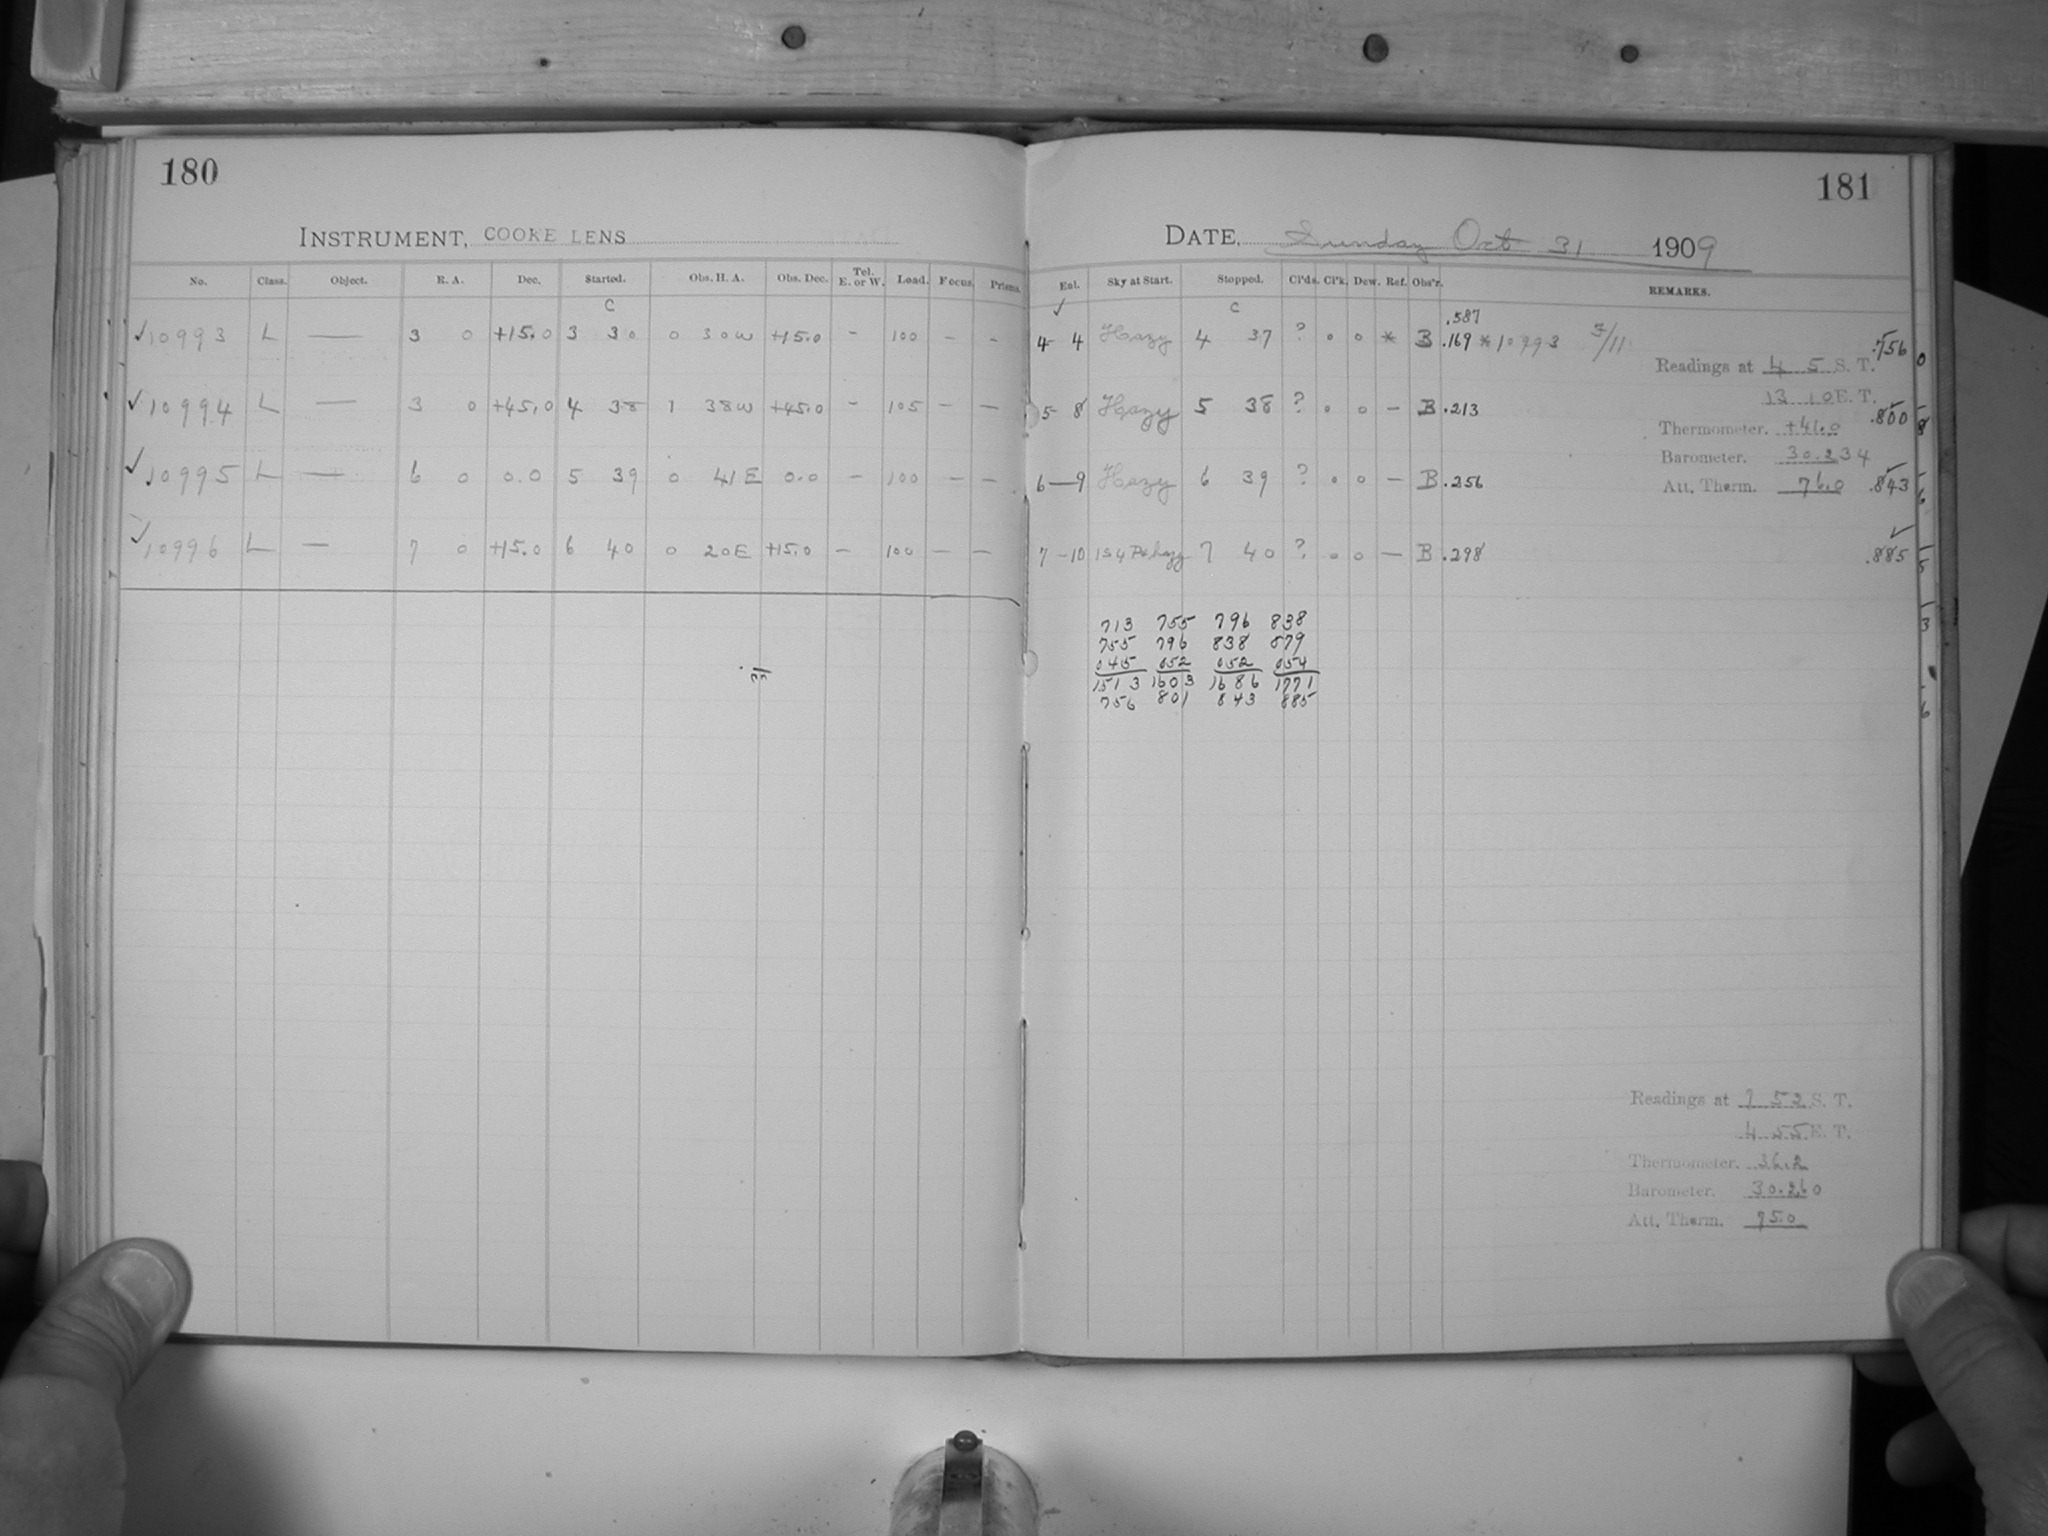 180
INSTRUMENT, COOKE LENS
No. Class. Object. R. A. Dec. Started. Obs. H. A. Obs. Dec. Tel. E. or W. Load. Focus. Prisms.
C
10993 L — 3 0 +15.0 3 30 0 30W +15.0 - 100 - -
10994 L — 3 0 +45.0 4 38 1 38W +45.0 - 105 - -
10995 L — 6 0 0.0 5 39 0 41E 0.0 - 100 - -
10996 L — 7 0 +15.0 6 40 0 20E +15.0 - 100 - -
181
DATE, Sunday Oct 31 1909
Eal. Sky at Start. Stopped. Cl'ds. Cl'k. Dew. Ref. Obs'r. REMARKS.
✓ C
4-4 Hazy 4 37 ? 0 0 * B .587
.169 * 10993 3/11 .756
5-8 Hazy 5 38 ? 0 0 - B .213 .800
6-9 Hazy 6 39 ? 0 0 - B .256 .843
7-10 7 40 ? 0 0 - B .298 .885
Readings at 4 5 S. T.
13 10 E. T.
Thermometer. +41.0
Barometer. 30.234
Att. Therm. 76.0
713 755 796 838
755 796 838 879
045 052 052 054
1513 1603 1686 1771
756 801 843 885
Readings at 7 52 S. T.
4 55 E. T.
Thermometer. 36.2
Barometer. 30.260
Att. Therm. 75.0